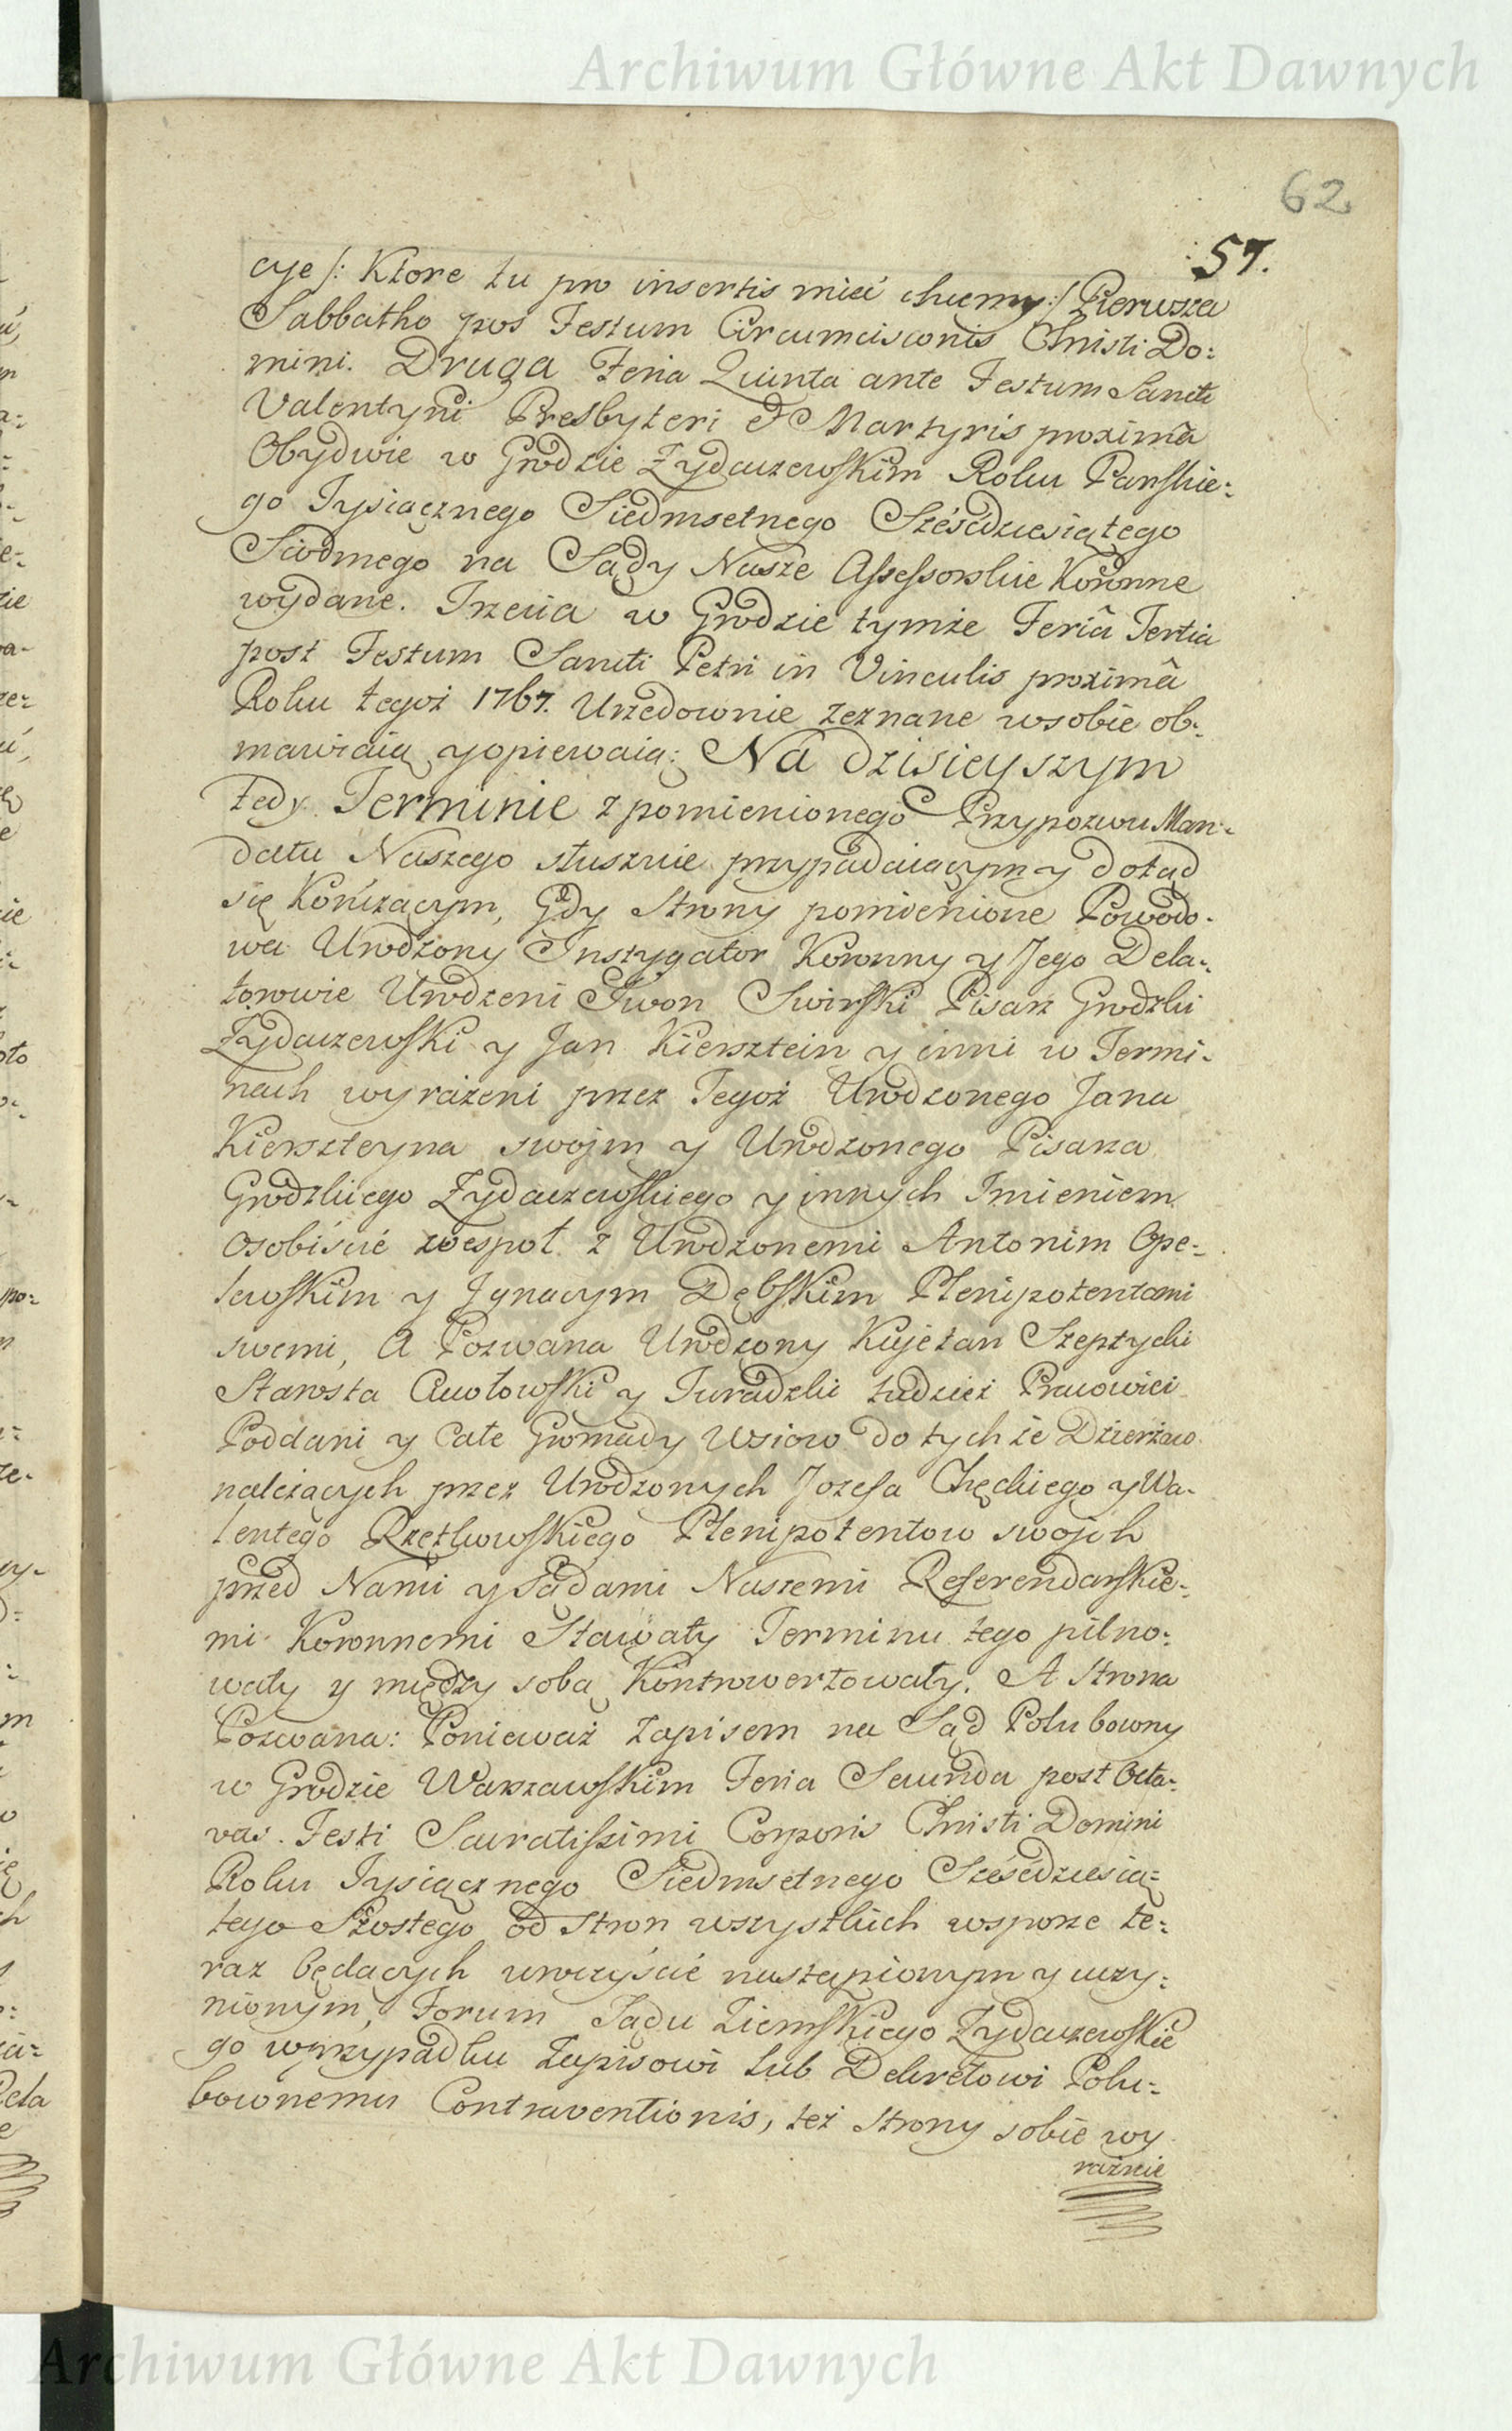 Archiwum Główne Akt Dawnych
62
57.
cye /: Ktore tu pro insertis mieć chcemy :/ Pierwsza
Sabbatho pos Festum Circumcisionis Christi Do:
mini. Druga Feria Quinta ante Festum Sancti
Valentyni Presbyteri & Martyris proximâ
Obydwie w Grodzie Zydaczewskim Roku Panskie:
go Tysiącznego Siedmsetnego Sześćdziesiątego
Siodmego na Sądy Nasze Assessorskie Koronne
wydane. Trzecia w Grodzie tymże Feriâ Tertia
post Festum Sancti Petri in Vinculis proximâ
Roku tegoż 1767. Urzędownie zeznane w sobie ob:
mawiaią y opiewaią: Na dzisieyszym
tedy Terminie z pomienionego Przypozwu Man:
datu Naszego słusznie przypadaiącym y dotąd
się Kończącym, Gdy Strony pomienione Powodo-
wa Urodzony Instygator Koronny y Jego Dela:
torowie Urodzeni Iwon Swirski Pisarz Grodzki
Zydaczewski y Jan Kiersztein y inni w Termi-
nach wyrażeni przez Tegoż Urodzonego Jana
Kierszteyna swoim y Urodzonego Pisarza
Grodzkiego Zydaczewskiego y innych Imieniem
osobiście wespoł z Urodzonemi Antonim Ope-
lewskim y Jgnacym Dębskim Plenipotentami
swemi, A Pozwana Urodzony Kajetan Szeptycki
Starosta y Juradzki tudzież Pracowici
Poddani y Całe Gromady Wsiow do tychże Dzierżaw
należących przez Urodzonych Jozefa Chęckiego y Wa-
lentego Plenipotentow swojch
przed Nami y Sądami Naszemi Referendarskie:
mi Koronnemi Stawały Terminu tego pilno:
wały y między sobą Kontrowertowały. A Strona
Pozwana: Ponieważ Zapisem na Sąd Polubowny
w Grodzie Warszawskim Feria Secunda post Octa:
vas Festi Sacratissimi Corporis Christi Domini
Roku Tysiącznego Siedmsetnego Sześćdziesią:
tego Szostego od Stron wszystkich w sporze te:
raz będących uroczyście nastąpionym y uczy:
nionym, Forum Sądu Ziemskiego Zydaczewskie
go w przypadku Zapisowi lub Dekretowi Polu:
bownemu Contraventionis, też Strony sobie wy
raźnie
Archiwum Główne Akt Dawnych